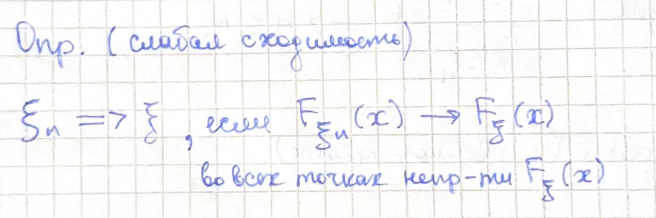 Опр. (слабая сходимость)
ξₙ => ξ, если F_ξₙ(x) → F_ξ(x)
во всех точках непр-ти F_ξ(x)